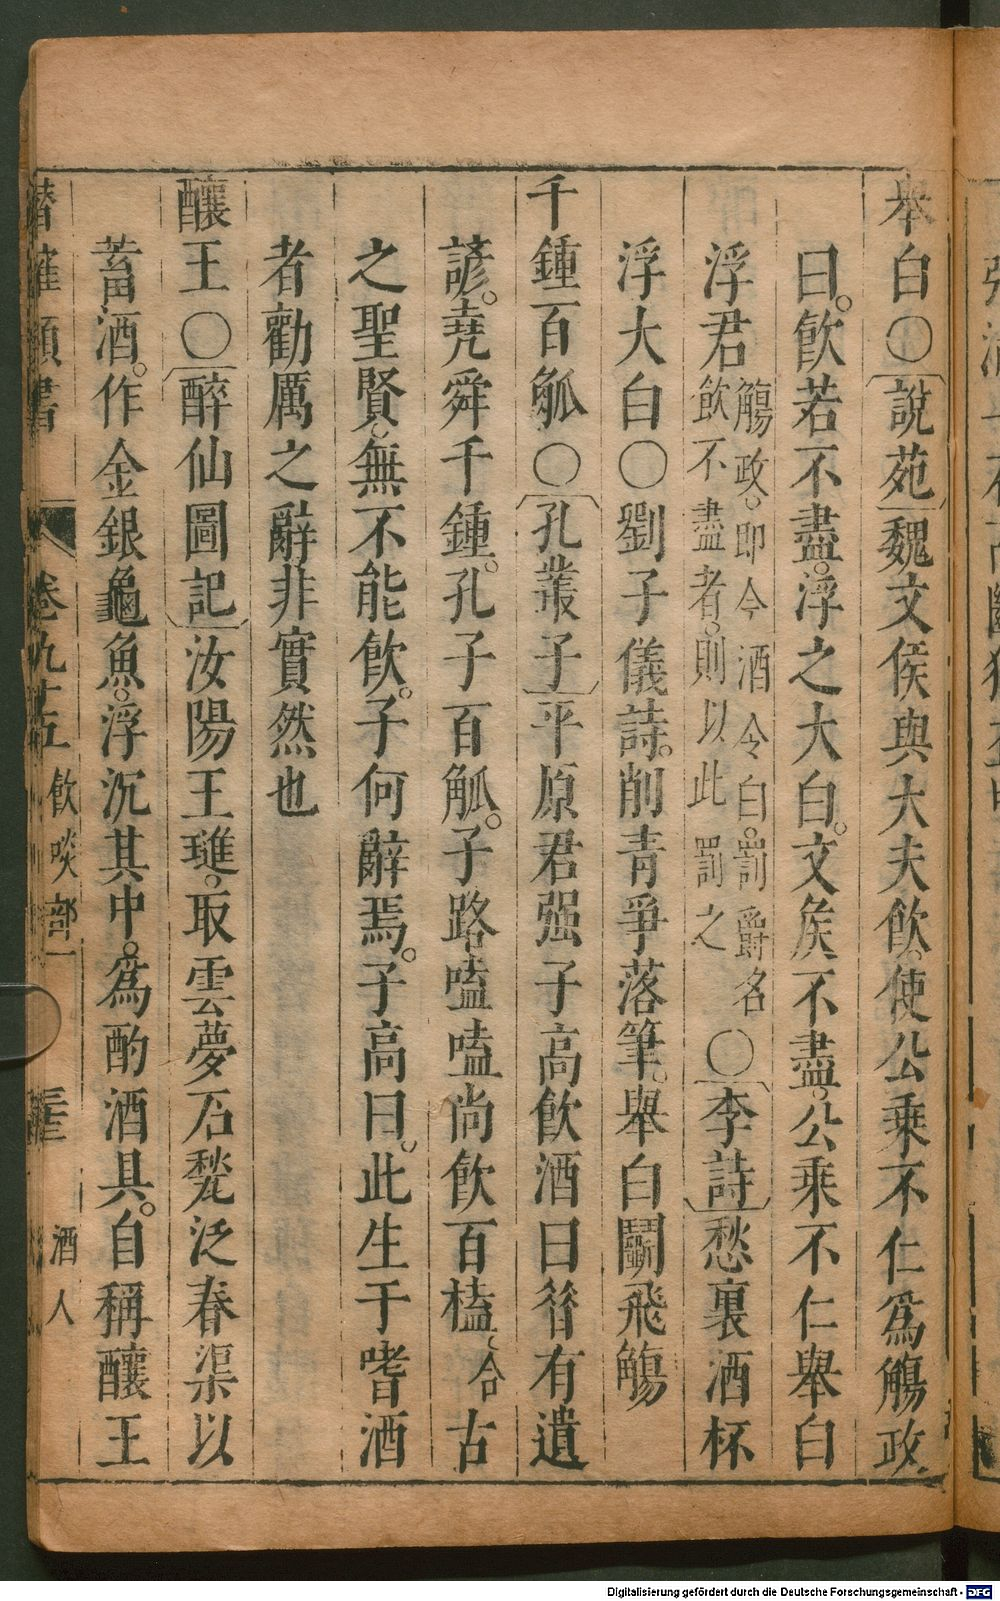 舉白○說苑魏文侯與大夫飲使公乘不仁爲觴政
曰飲若不盡浮之大白文矦不盡公乘不仁舉白
浮君觴政即今酒令白罰爵名飲不盡者則以此罰之○李詩愁裏酒杯
浮大白○劉子儀詩削青爭落筆舉白鬭飛觴
千鍾百觚○孔叢子平原君强子高飲酒曰昔有遺
諺堯舜千鍾孔子百觚子路嗑嗑尚飲百榼合古
之聖賢無不能飲子何辭焉子高曰此生于嗜酒
者勸厲之辭非實然也
釀王○醉仙圖記汝陽王璡取雲夢石甃泛春渠以
蓄酒作金銀龜魚浮沉其中爲酌酒具自稱釀王
潛確類書 卷九十五 飲啖部一 酒人
Digitalisierung gefördert durch die Deutsche Forschungsgemeinschaft - DFG